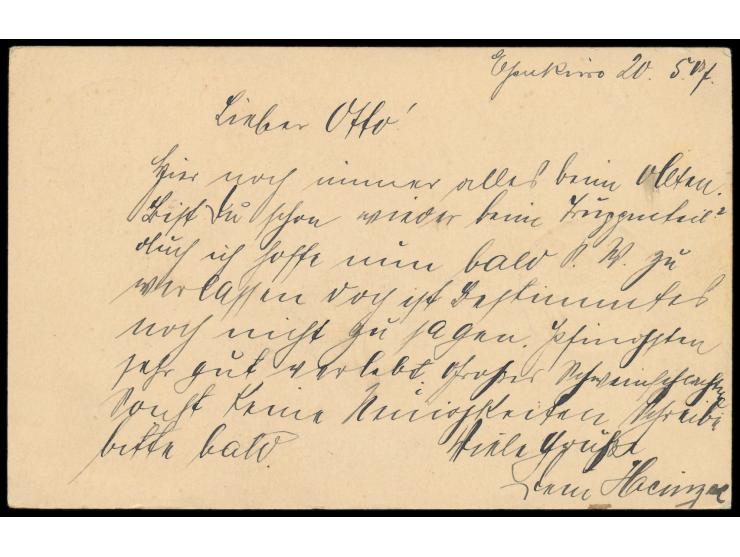 Epukiro 20. 5. 07.
Lieber Otto!
Hier noch immer alles beim Alten.
Bist Du schon wieder beim Truppenteil?
Auch ich hoffe nun bald S. W. zu
verlassen doch ist Bestimmtes
noch nicht zu sagen. Pfingsten
sehr gut verlebt. Großes Schweinschlachten
Sonst keine Neuigkeiten. Schreibe
bitte bald. Viele Grüße
Dein